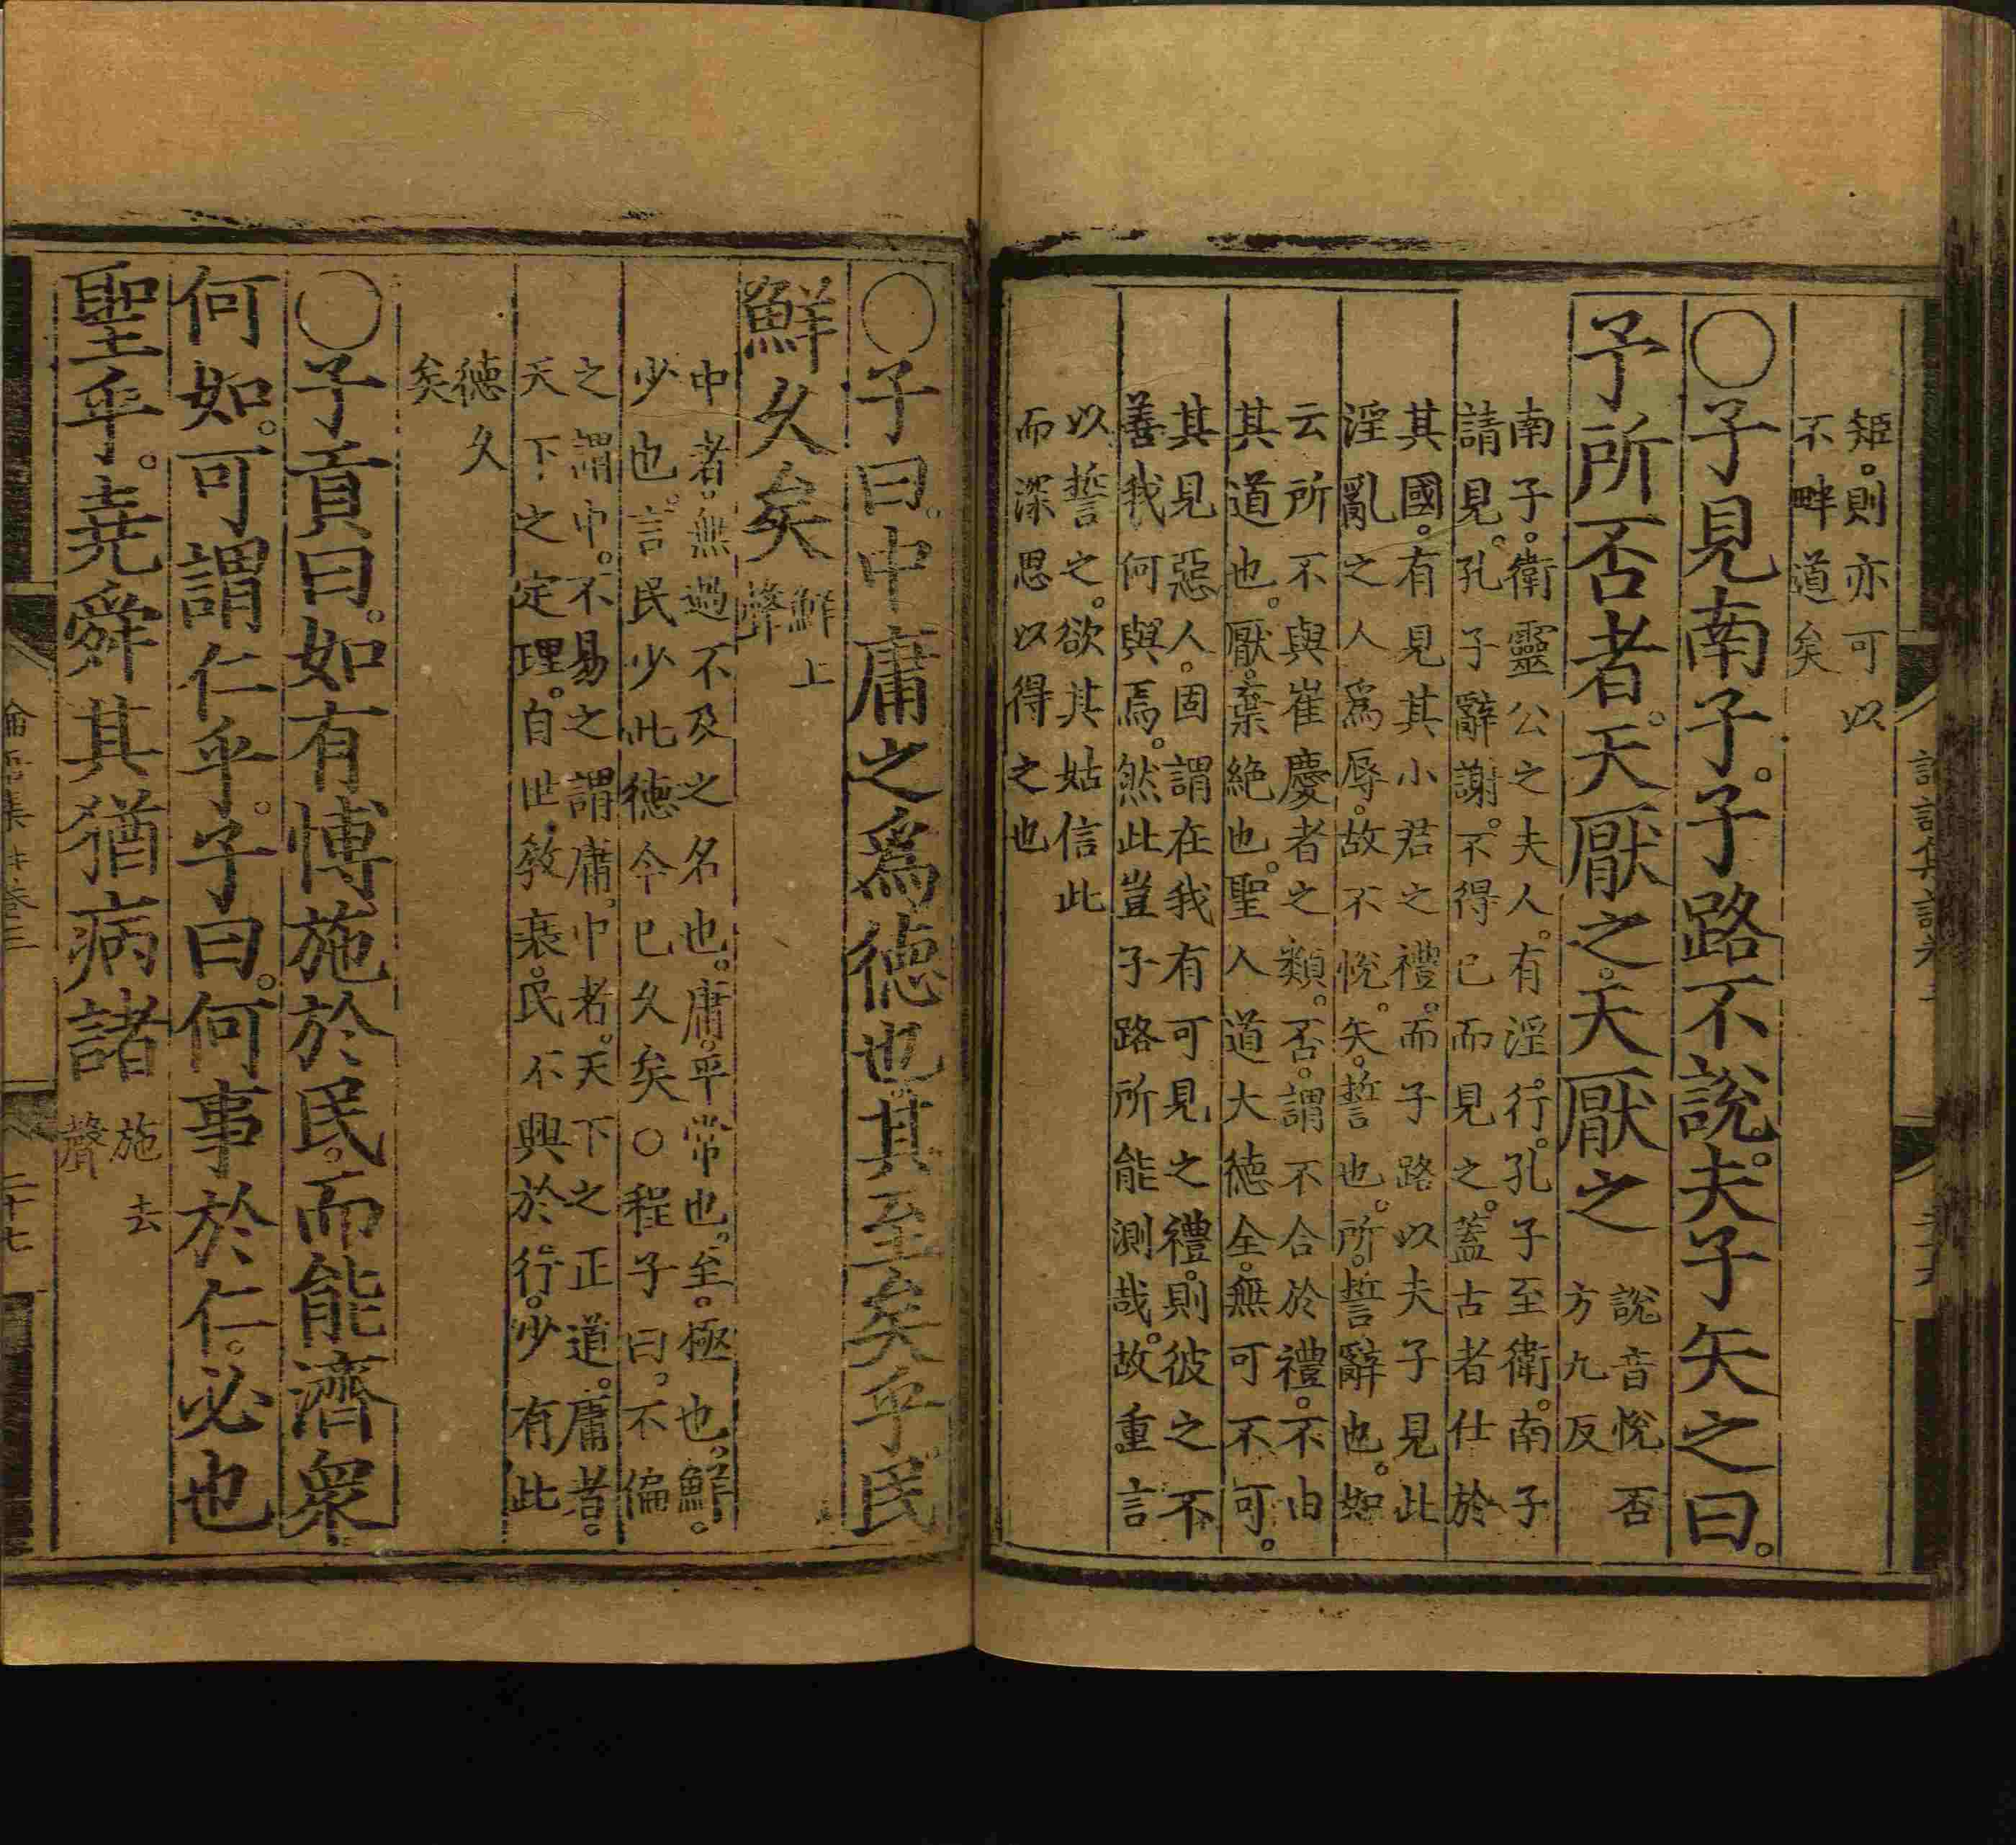 矩。則亦可以
不畔道矣
○子見南子。子路不說。夫子矢之曰。
予所否者。天厭之。天厭之
說音悅否
方九反
南子。衛靈公之夫人。有淫行。孔子至衛。南子
請見。孔子辭謝。不得已而見之。蓋古者仕於
其國。有見其小君之禮。而子路以夫子見此
淫亂之人爲辱。故不悅。矢。誓也。所。誓辭也。如
云所不與崔慶者之類。否。謂不合於禮。不由
其道也。厭。棄絕也。聖人道大德全。無可不可。
其見惡人。固謂在我有可見之禮。則彼之不
善我何與焉。然此豈子路所能測哉。故重言
以誓之。欲其姑信此
而深思以得之也
○子曰。中庸之爲德也。其至矣乎。民
鮮久矣
鮮上
聲
中者。無過不及之名也。庸。平常也。至。極也。鮮。
少也。言民少此德今已久矣○程子曰。不偏
之謂中。不易之謂庸。中者。天下之正道。庸者。
天下之定理。自世敎衰。民不興於行。少有此
德久
矣
○子貢曰。如有博施於民。而能濟衆
何如。可謂仁乎。子曰。何事於仁。必也
聖乎。堯舜其猶病諸
施去
聲
二十七